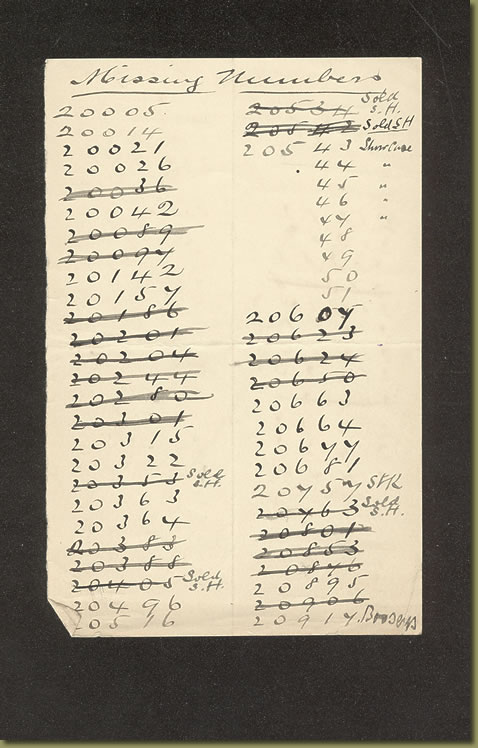 Missing Numbers
20005
20014
20021
20026
20036
20042
20089
20097
20142
20157
20186
20201
20204
20244
20280
20301
20315
20322
20353 Sold S.H.
20363
20364
20383
20388
20405 Sold S.H.
20496
20516
20534 Sold S.H.
20542 Sold SH
20543 Show Case
44 "
45 "
46 "
47 "
48
49
50
51
20607
20623
20624
20650
20663
20664
20677
20681
20757 Stk
20763 Sold S.H.
20801
20853
20876
20895
20906
20917. Booseys